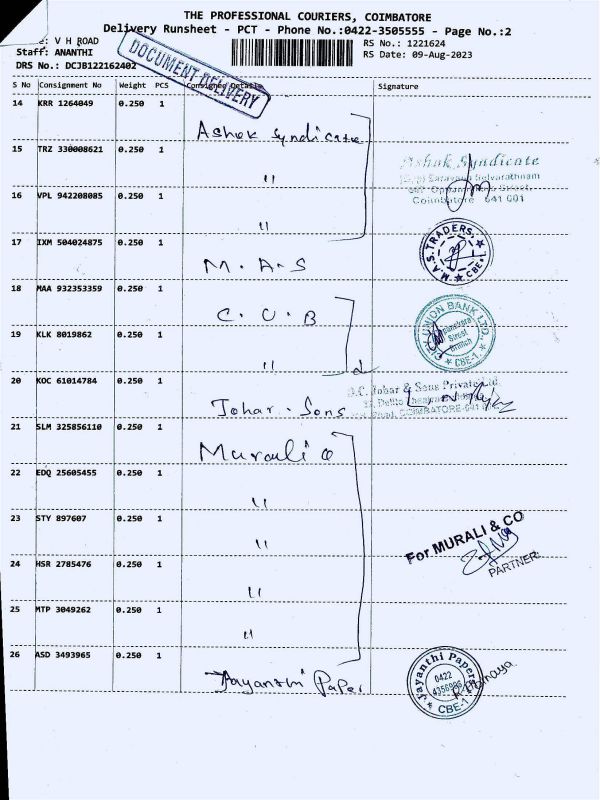 THE PROFESSIONAL COURIERS, COIMBATORE
Delivery Runsheet - PCT - Phone No.:0422-3505555 - Page No.:2
: V H ROAD
RS No.: 1221624
Staff: ANANTHI
RS Date: 09-Aug-2023
DRS No.: DCJB122162402
DOCUMENT DELIVERY
S No Consignment No Weight PCS Consignee Details Signature
14 KRR 1264049 0.250 1
Ashok Syndicate
15 TRZ 330008621 0.250 1
"
Ashok Syndicate
Coimbatore 641 001
16 VPL 942208085 0.250 1
"
17 IXM 504024875 0.250 1
M.A.S
M.A.S. TRADERS, CBE-1
18 MAA 932353359 0.250 1
C.U.B
CITY UNION BANK LTD. Street Branch CBE-1.
19 KLK 8019862 0.250 1
"
20 KOC 61014784 0.250 1
Johar. Sons
D.C. Johar & Sons Private Ltd.
COIMBATORE-641
21 SLM 325856110 0.250 1
Murali
22 EDQ 25605455 0.250 1
"
23 STY 897607 0.250 1
"
For MURALI & CO
PARTNER
24 HSR 2785476 0.250 1
"
25 MTP 3049262 0.250 1
"
26 ASD 3493965 0.250 1
Jayanthi Paper
Jayanthi Papers 0422 CBE-1